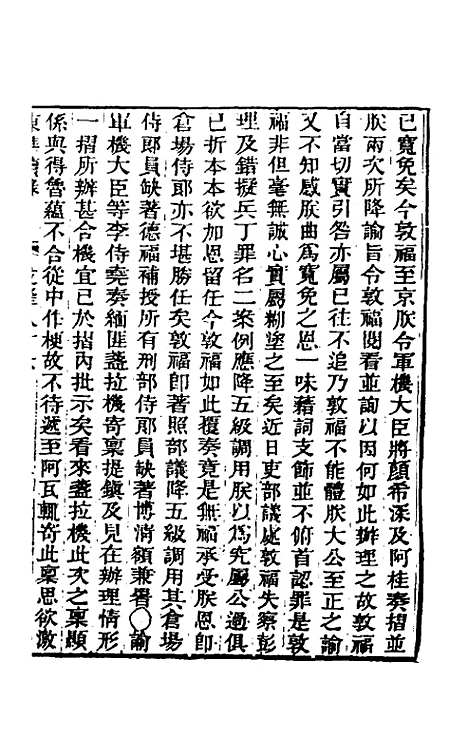 已寬免矣今敦福至京朕令軍機大臣將顏希深及阿桂奏摺並
朕兩次所降諭旨令敦福閱看並詢以因何如此辦理之故敦福
自當切實引咎亦屬已往不追乃敦福不能體朕大公至正之諭
又不知感朕曲為寬免之恩一味藉詞支飾並不俯首認罪是敦
福非但毫無誠心實屬糊塗之至矣近日吏部議處敦福失察彭
理及錯擬兵丁罪名二案例應降五級調用朕以為究屬公過俱
已折本本欲加恩留任今敦福如此覆奏竟是無福承受朕恩即
倉場侍郎亦不堪勝任矣敦福即著照部議降五級調用其倉場
侍郎員缺著德福補授所有刑部侍郎員缺著博清額兼署〇諭
軍機大臣等李侍堯奏緬匪盞拉機寄稟提鎮及見在辦理情形
一摺所辦甚合機宜已於摺內批示矣看來盞拉機此次之稟顯
係與得魯蘊不合從中作梗故不待遞至阿瓦輒寄此稟思欲激
東華續錄